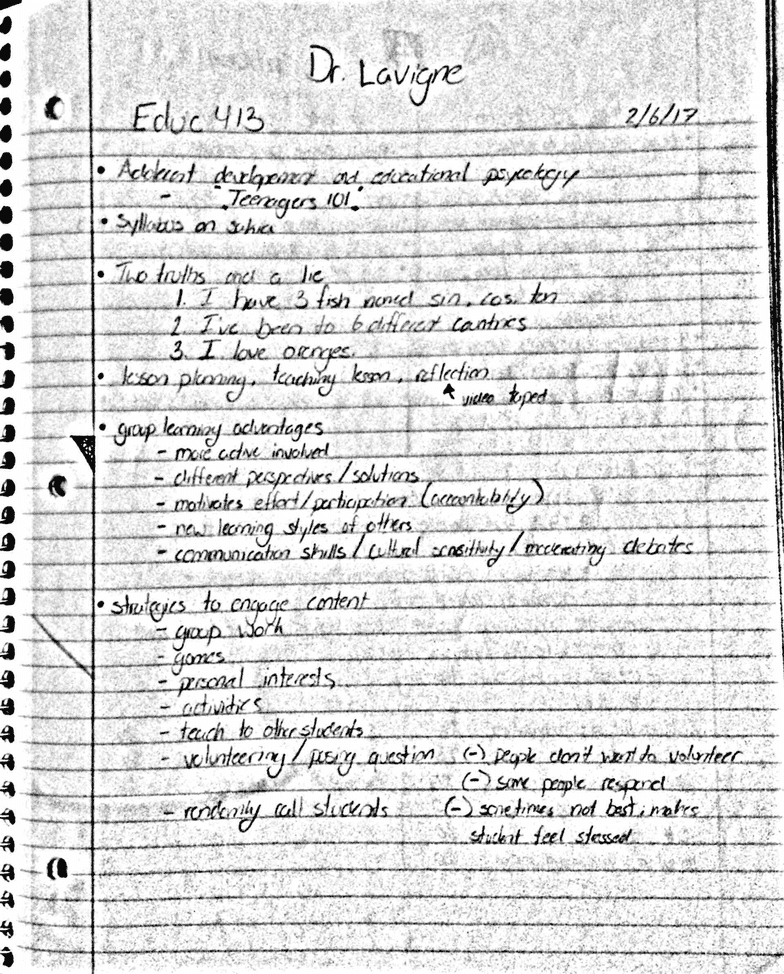 Dr. Lavigne
Educ 413 2/6/17
• Adolescent development and educational psycology
- "Teenagers 101"
• Syllabus on sakia
• Two truths and a lie
1. I have 3 fish named sin, cos, tan
2. I've been to 6 different countries
3. I love oranges.
• lesson planning, teaching lesson, reflection
video taped
• group learning advantages
- more active involved
- different perspectives/solutions
- motivates effort/participation (accountability)
- new learning styles of others
- communication skills / cultural sensitivity / moderating debates
• strategies to engage content
- group work
- games
- personal interests
- activities
- teach to other students
- volunteering / posing question (-) people don't want to volunteer
(-) same people respond
- randomly call students (-) sometimes not best, makes
student feel stressed